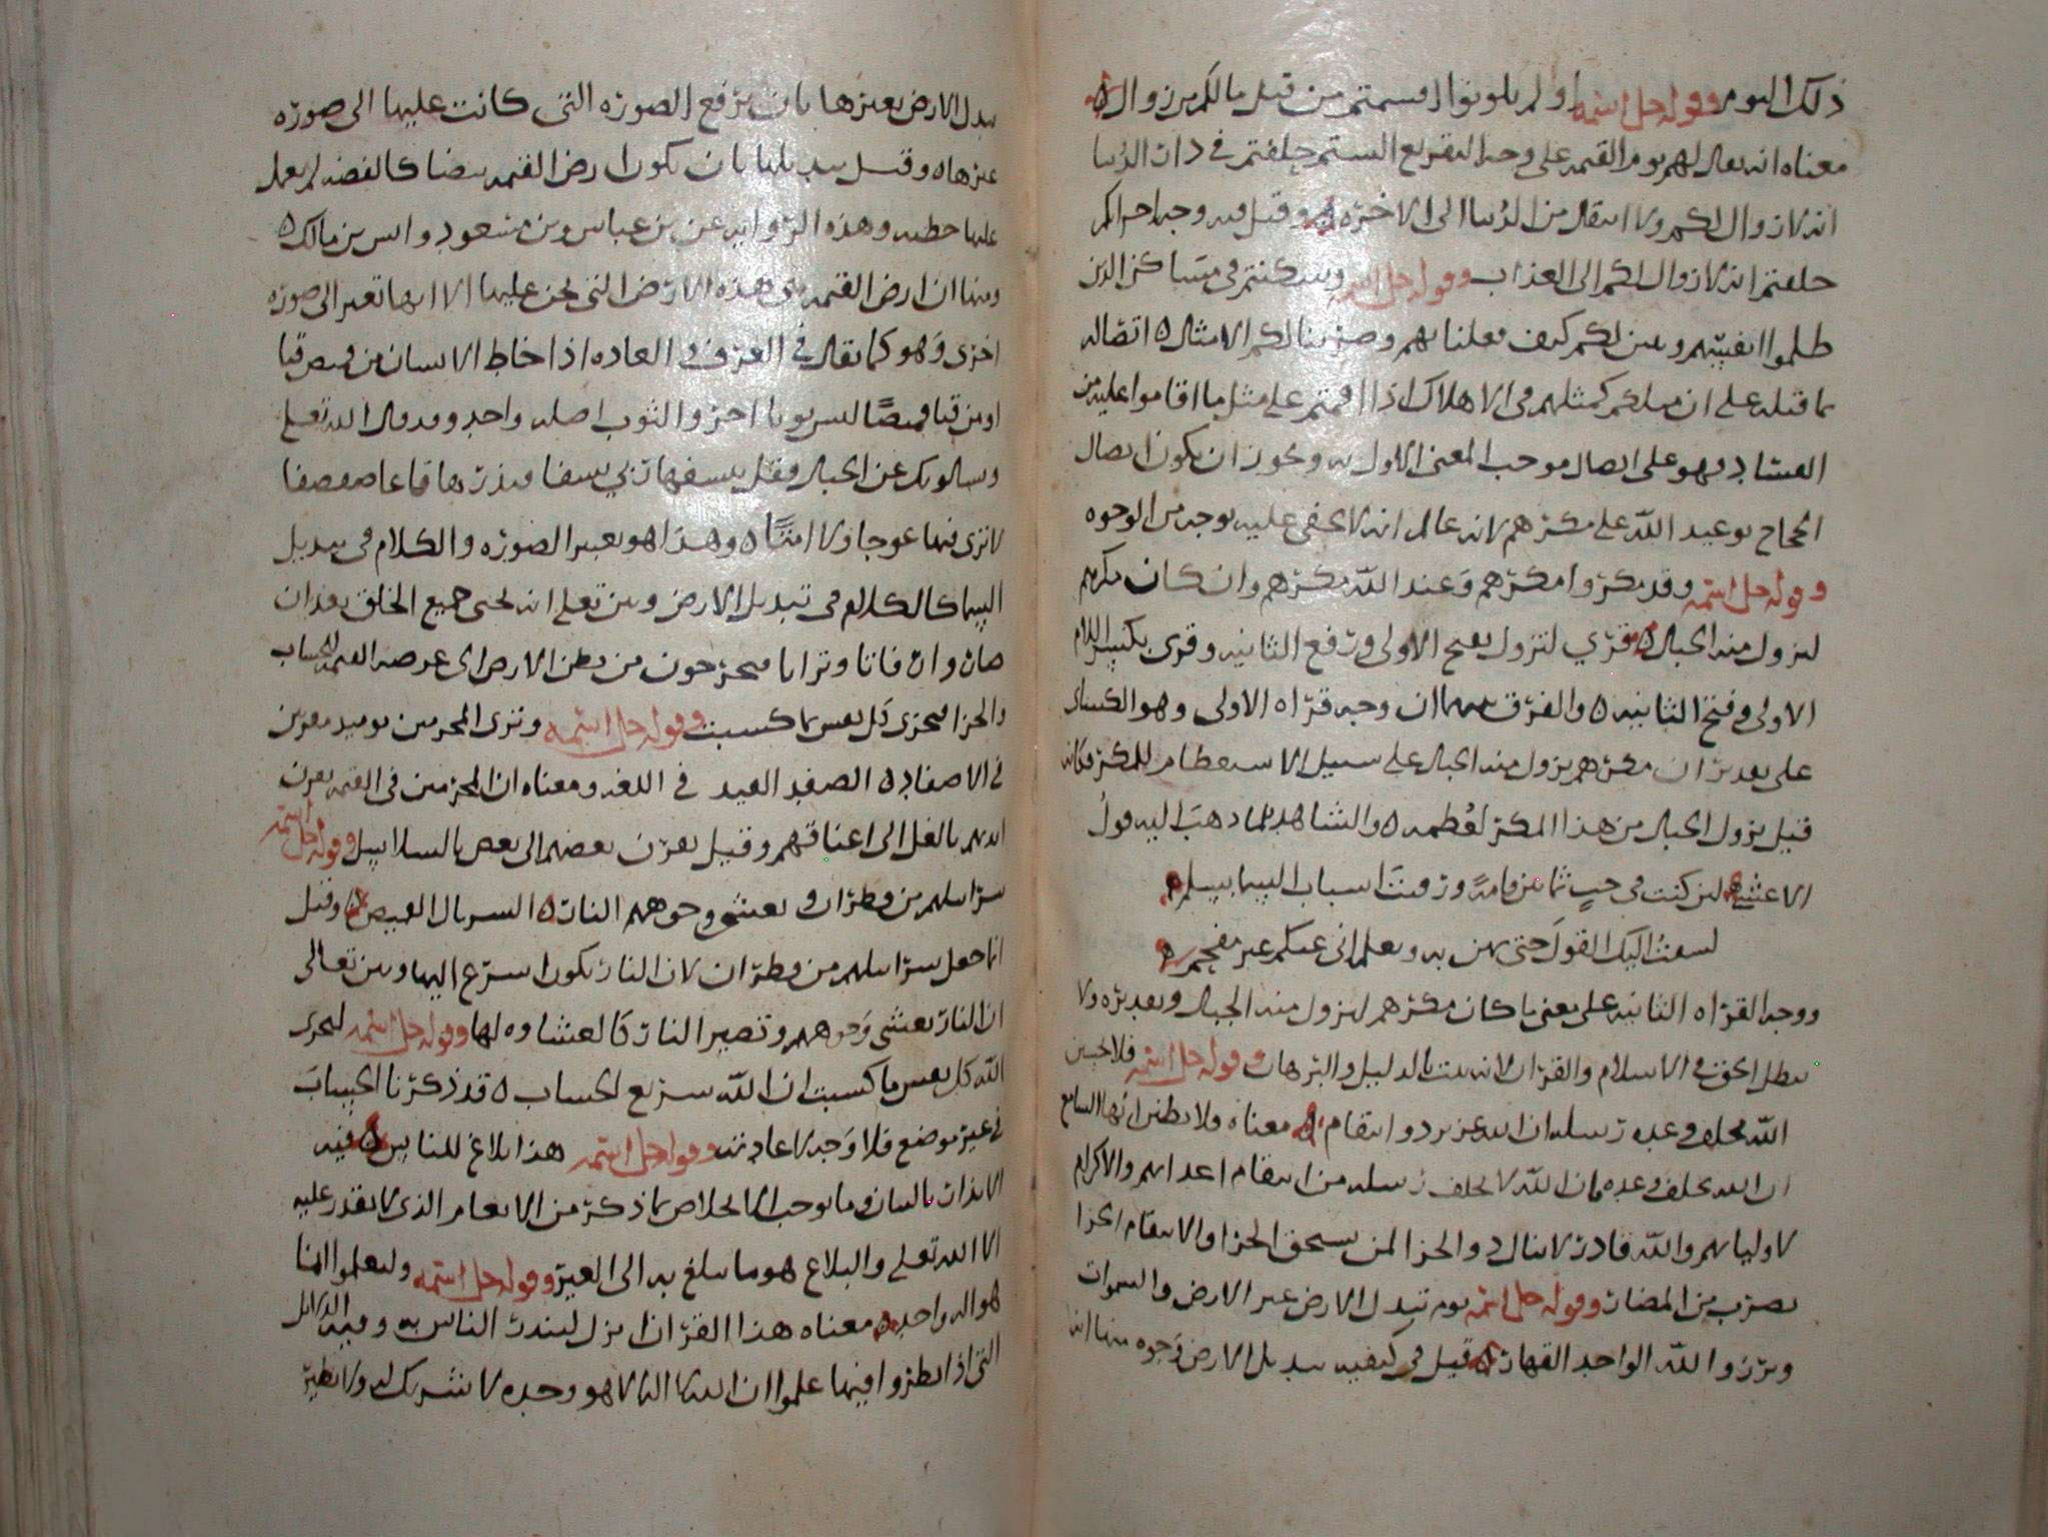 ذلك اليوم وقوله جل اسمه او لم تكونوا اقسمتم من قبل مالكم من زوال ه
معناه انه يقال لهم يوم القيمه على وجه التقريع الستم حلفتم في دار الدنيا
انه لا زوال لكم ولا انتقال من الدنيا الى الاخره ه وقيل فيه وجه اخر اكم
حلفتم انه لا زوال لكم الى العذاب وقوله جل اسمه وسكنتم في مساكن الذين
ظلموا انفسهم وتبين لكم كيف فعلنا بهم وضربنا لكم الامثال ه اتصاله
بما قبله على ان مثلكم كمثلهم في الاهلاك اذا اقمتم على مثل ما اقاموا عليه من
الفساد فهو على اتصال موجب المعنى الاول به ويجوز ان يكون اتصال
الحجاج بوعيد الله على مكرهم لانه عالم انه لا يخفى عليه بوجه من الوجوه
وقوله جل اسمه وقد مكروا مكرهم وعند الله مكرهم وان كان مكرهم
لتزول منه الجبال ه قري لتزول بفتح الاولى ورفع الثانيه وقرى بكسر اللام
الاولى وفتح الثانيه ه والفرق بينهما ان وجه قراه الاولى وهو الكسائي
على تقدير ان مكرهم يزول منه الجبال على سبيل الاستعظام للمكر فكانه
قيل يزول الجبال من هذا المكر لعظمه ه والشاهد لما ذهب اليه قول
الاعشى ه لئن كنت في جب ثمانين قامة ورقيت اسباب السما بسلم ه
ليستدرجنك القول حتى تهره وتعلم اني عنكم غير مفحم ه
ووجه القراه الثانيه على معنى ما كان مكرهم لتزول منه الجبال وتقديره ولا
يبطل الحق في الاسلام والقران لانه ثبت بالدليل والبرهان وقوله جل اسمه فلا تحسبن
الله مخلف وعده رسله ان الله عزيز ذو انتقام ه معناه ولا تظنن ايها السامع
ان الله يخلف وعده فان الله لا يخلف رسله من انتقام اعدائهم والاكرام
لاوليائهم والله قادر لا ينال ذو الجزا لمن يستحق الجزا والانتقام الجزا
بضرب من المضار وقوله جل اسمه يوم تبدل الارض غير الارض والسموات
وبرزوا لله الواحد القهار ه قيل في كيفيه تبديل الارض وجوه منها انه
تبدل الارض بغيرها بان ترفع الصوره التي كانت عليها الى صوره
غيرها ه وقيل تبديلها بان تكون ارض القيمه بيضا كالفضه لم يعمل
عليها خطيه وهذه الروايه عن بن عباس وبن مسعود وانس بن مالك ه
ومنها ان ارض القيمه هي هذه الارض التي نحن عليها الا انها تغير الى صوره
اخرى وهو كما يقال في العرف والعاده اذا خاط الانسان من قميص قبا
او من قبا قميصا لبس ثوبا اخر والثوب اصله واحد وقد قال الله تعلى
ويسالونك عن الجبال فقل ينسفها ربي نسفا فيذرها قاعا صفصفا
لا ترى فيها عوجا ولا امتا ه وهذا هو تغيير الصوره والكلام في تبديل
السما كالكلام في تبديل الارض وبين تعلى انه يحيى جميع الخلق بعد ان
صاروا رفاتا وترابا فيخرجون من بطن الارض الى عرصه القيمه للحساب
والجزا فيجزى كل نفس بما كسبت وقوله جل اسمه وترى المجرمين يوميذ مقرنين
في الاصفاد ه الصفد القيد في اللغه ومعناه ان المجرمين في القيمه يقرن
ايديهم بالغل الى اعناقهم وقيل يقرن بعضهم الى بعض بالسلاسل وقوله جل اسمه
سرابيلهم من قطران وتغشى وجوههم النار ه السربال القميص ه وقيل
انما جعل سرابيلهم من قطران لان النار تكون اسرع اليها وبين تعالى
ان النار تغشى وجوههم وتصير النار كالغشاوه لها وقوله جل اسمه ليجزى
الله كل نفس ما كسبت ان الله سريع الحساب ه قد ذكرنا الحساب
في غير موضع فلا وجه لاعادته وقوله جل اسمه هذا بلاغ للناس ه فيه
الانذار بالبيان وما يوجب الاخلاص بما ذكر من الانعام الذي لا يقدر عليه
الا الله تعلى والبلاغ هو ما يبلغ به الى الغير وقوله جل اسمه وليعلموا انما
هو اله واحد ه معناه هذا القران انزل لينذر الناس به وفيه الدلائل
التي اذا نظروا فيها علموا ان الله لا اله الا هو وحده لا شريك له ولا نظير